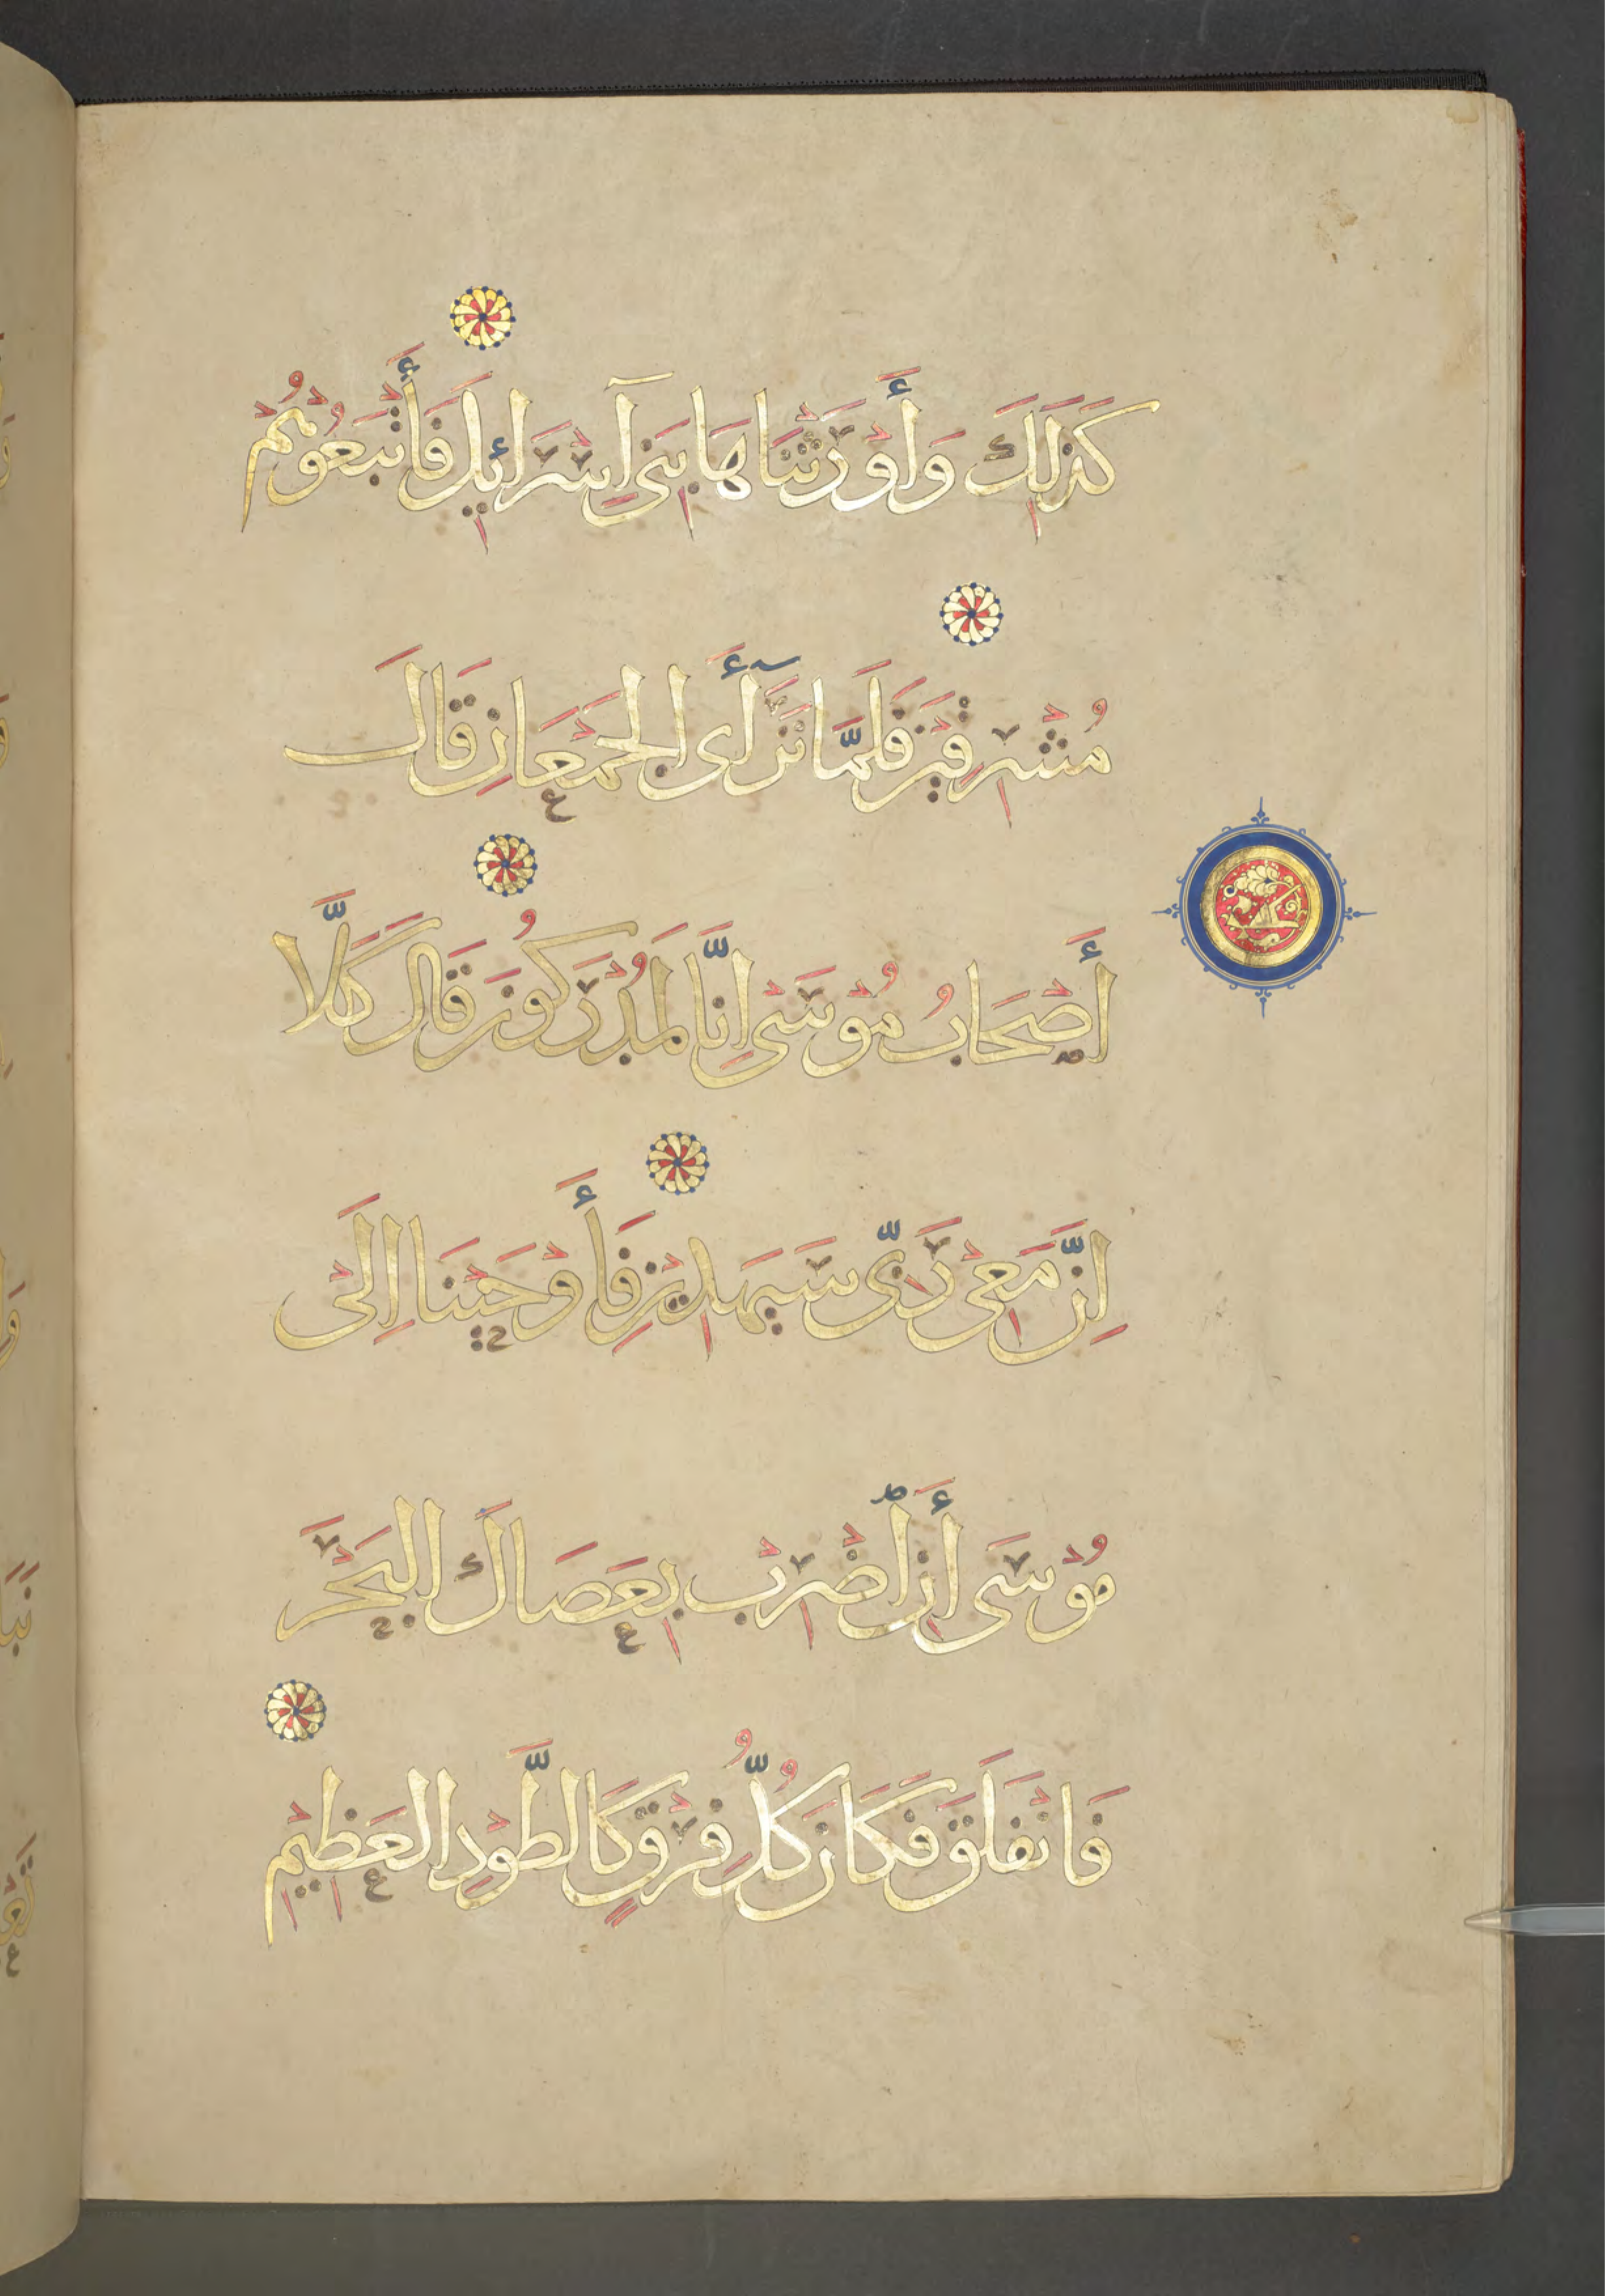 كَذَلِكَ وَأَوْرَثْنَاهَا بَنِي آِسْرَائِيلَ فَأَتْبَعُوهُمْ
مُشْرِقِيْنَ فَلَمَّا تَرَآَأَى الجَمْعَانِ قَالَ
أَصْحَابُ مُوْسَىْ اِنَّا لَمُدْرَكُونَ قَالَ كَلَّا
اِنَّ مَعِيْ رَبِّيْ سَيَهْدِيْنِ فَأَوْحَيْنَا اِلَىْ
مُوْسَى أَنِ اضْرِبْ بِعَصَاكَ البَحْرَ
فَانْفَلَقَ فَكَانَ كُلُّ فِرْقٍ كَالطَّوْدِ العَظِيْمِ